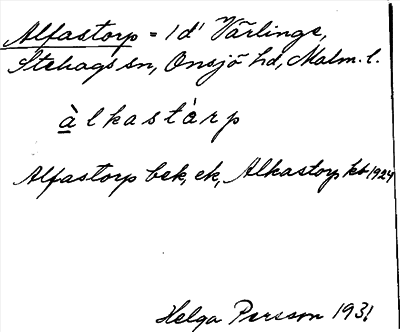 Alfastorp = 1 d' Värlinge,
Stehags sn, Onsjö hd, Malm. l.
àlkastàrp
Alfastorp bek, ek, Alkastorp kb 1924
Helga Persson 1931